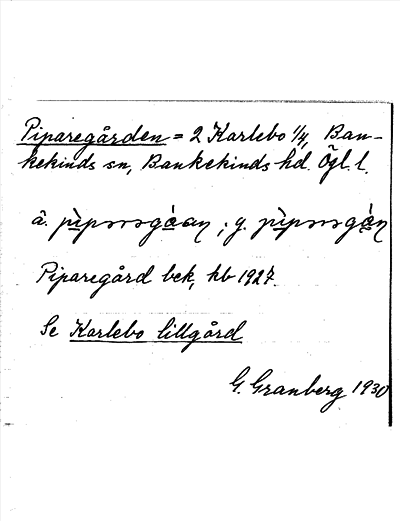 Piparegården = 2 Karlebo 1/4, Ban-
kekinds sn, Bankekinds hd. Ögl. l.
å. ; y.
Piparegård bek, kb 1927.
Se Karlebo lillgård
G. Granberg 1930